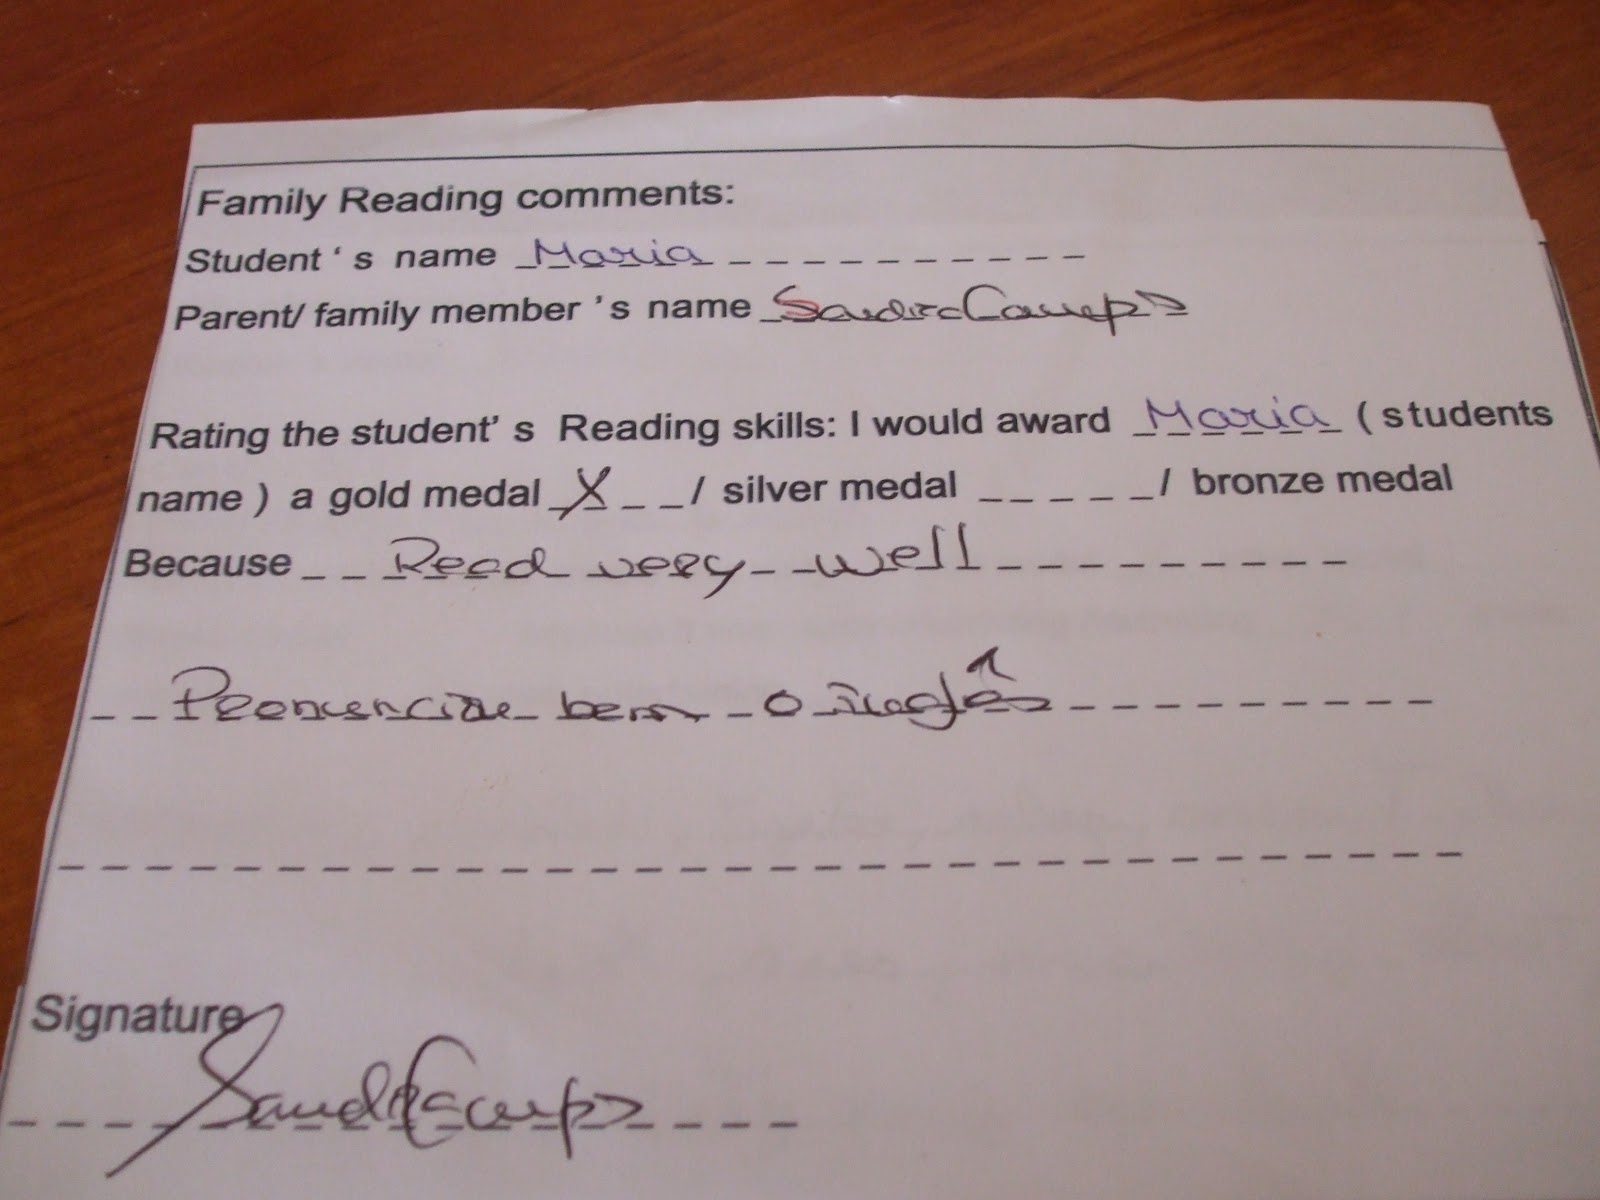 Family Reading comments:
Student ‘ s name _Maria_ _ _ _ _ _ _ _ _ _
Parent/ family member ’s name _Sandra Campos
Rating the student’ s Reading skills: I would award _Maria_ ( students
name ) a gold medal _X_ _ _/ silver medal _ _ _ _ _/ bronze medal
Because _ _ Read very _ _ well _ _ _ _ _ _ _ _ _
_ _ Pronuncia bem _ o inglês _ _ _ _ _ _ _ _ _
Signature
Sandra Campos